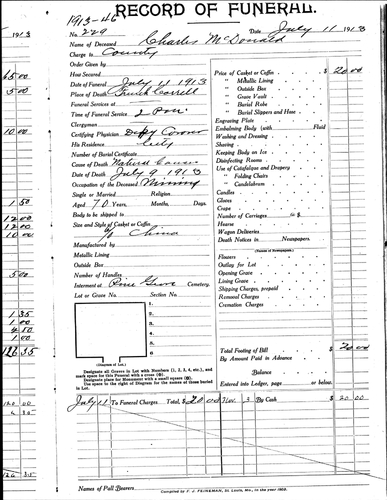 1913-46
RECORD OF FUNERAL.
No. 229 Date July 11 1913
Name of Deceased Charles McDonald
Charge to County
Order Given by
How Secured
Date of Funeral July 11 1913
Place of Death French Correll
Funeral Services at
Time of Funeral Service 2 P.M.
Clergyman
Certifying Physician Depty Coroner
His Residence City
Number of Burial Certificate
Cause of Death Natural Causes
Date of Death July 9 1913
Occupation of the Deceased Mining
Single or Married Religion
Aged 70 Years, Months, Days.
Body to be shipped to
Size and Style of Casket or Coffin
Manufactured by
Metallic Lining
Outside Box
Number of Handles
Interment at Pine Grove Cemetery.
Lot or Grave No. Section No.
1.
2.
3.
4.
5.
6.
(Diagram of Lot.)
Designate all Graves in Lot with Numbers (1, 2, 3, 4, etc.), and
mark space for this Funeral with a cross (⊗).
Designate place for Monument with a small square (⊡).
Use space to right of Diagram for the names of those buried
in Lot.
Price of Casket or Coffin $ 20 00
" Metallic Lining
" Outside Box
" Grave Vault
" Burial Robe
" Burial Slippers and Hose
Engraving Plate
Embalming Body (with Fluid
Washing and Dressing
Shaving
Keeping Body on Ice
Disinfecting Rooms
Use of Catafalque and Drapery
" Folding Chairs
" Candelabrum
Candles
Gloves
Crape
Number of Carriages @ $
Hearse
Wagon Deliveries
Death Notices in Newspapers.
(Names of Newspapers)
Flowers
Outlay for Lot
Opening Grave
Lining Grave
Shipping Charges, prepaid
Removal Charges
Cremation Charges
Total Footing of Bill $ 20 00
By Amount Paid in Advance
Balance
Entered into Ledger, page or below.
July 11 To Funeral Charges Total, $ 20 00 Nov. 3 By Cash $ 20 00
Names of Pall Bearers
Compiled by F. J. FEINEMAN, St. Louis, Mo., in the year 1902.
1913
65 00
5 00
10 00
1 50
12 00
12 00
10 00
5 00
1 35
1 00
4 50
1 00
126 35
120 00
126 35